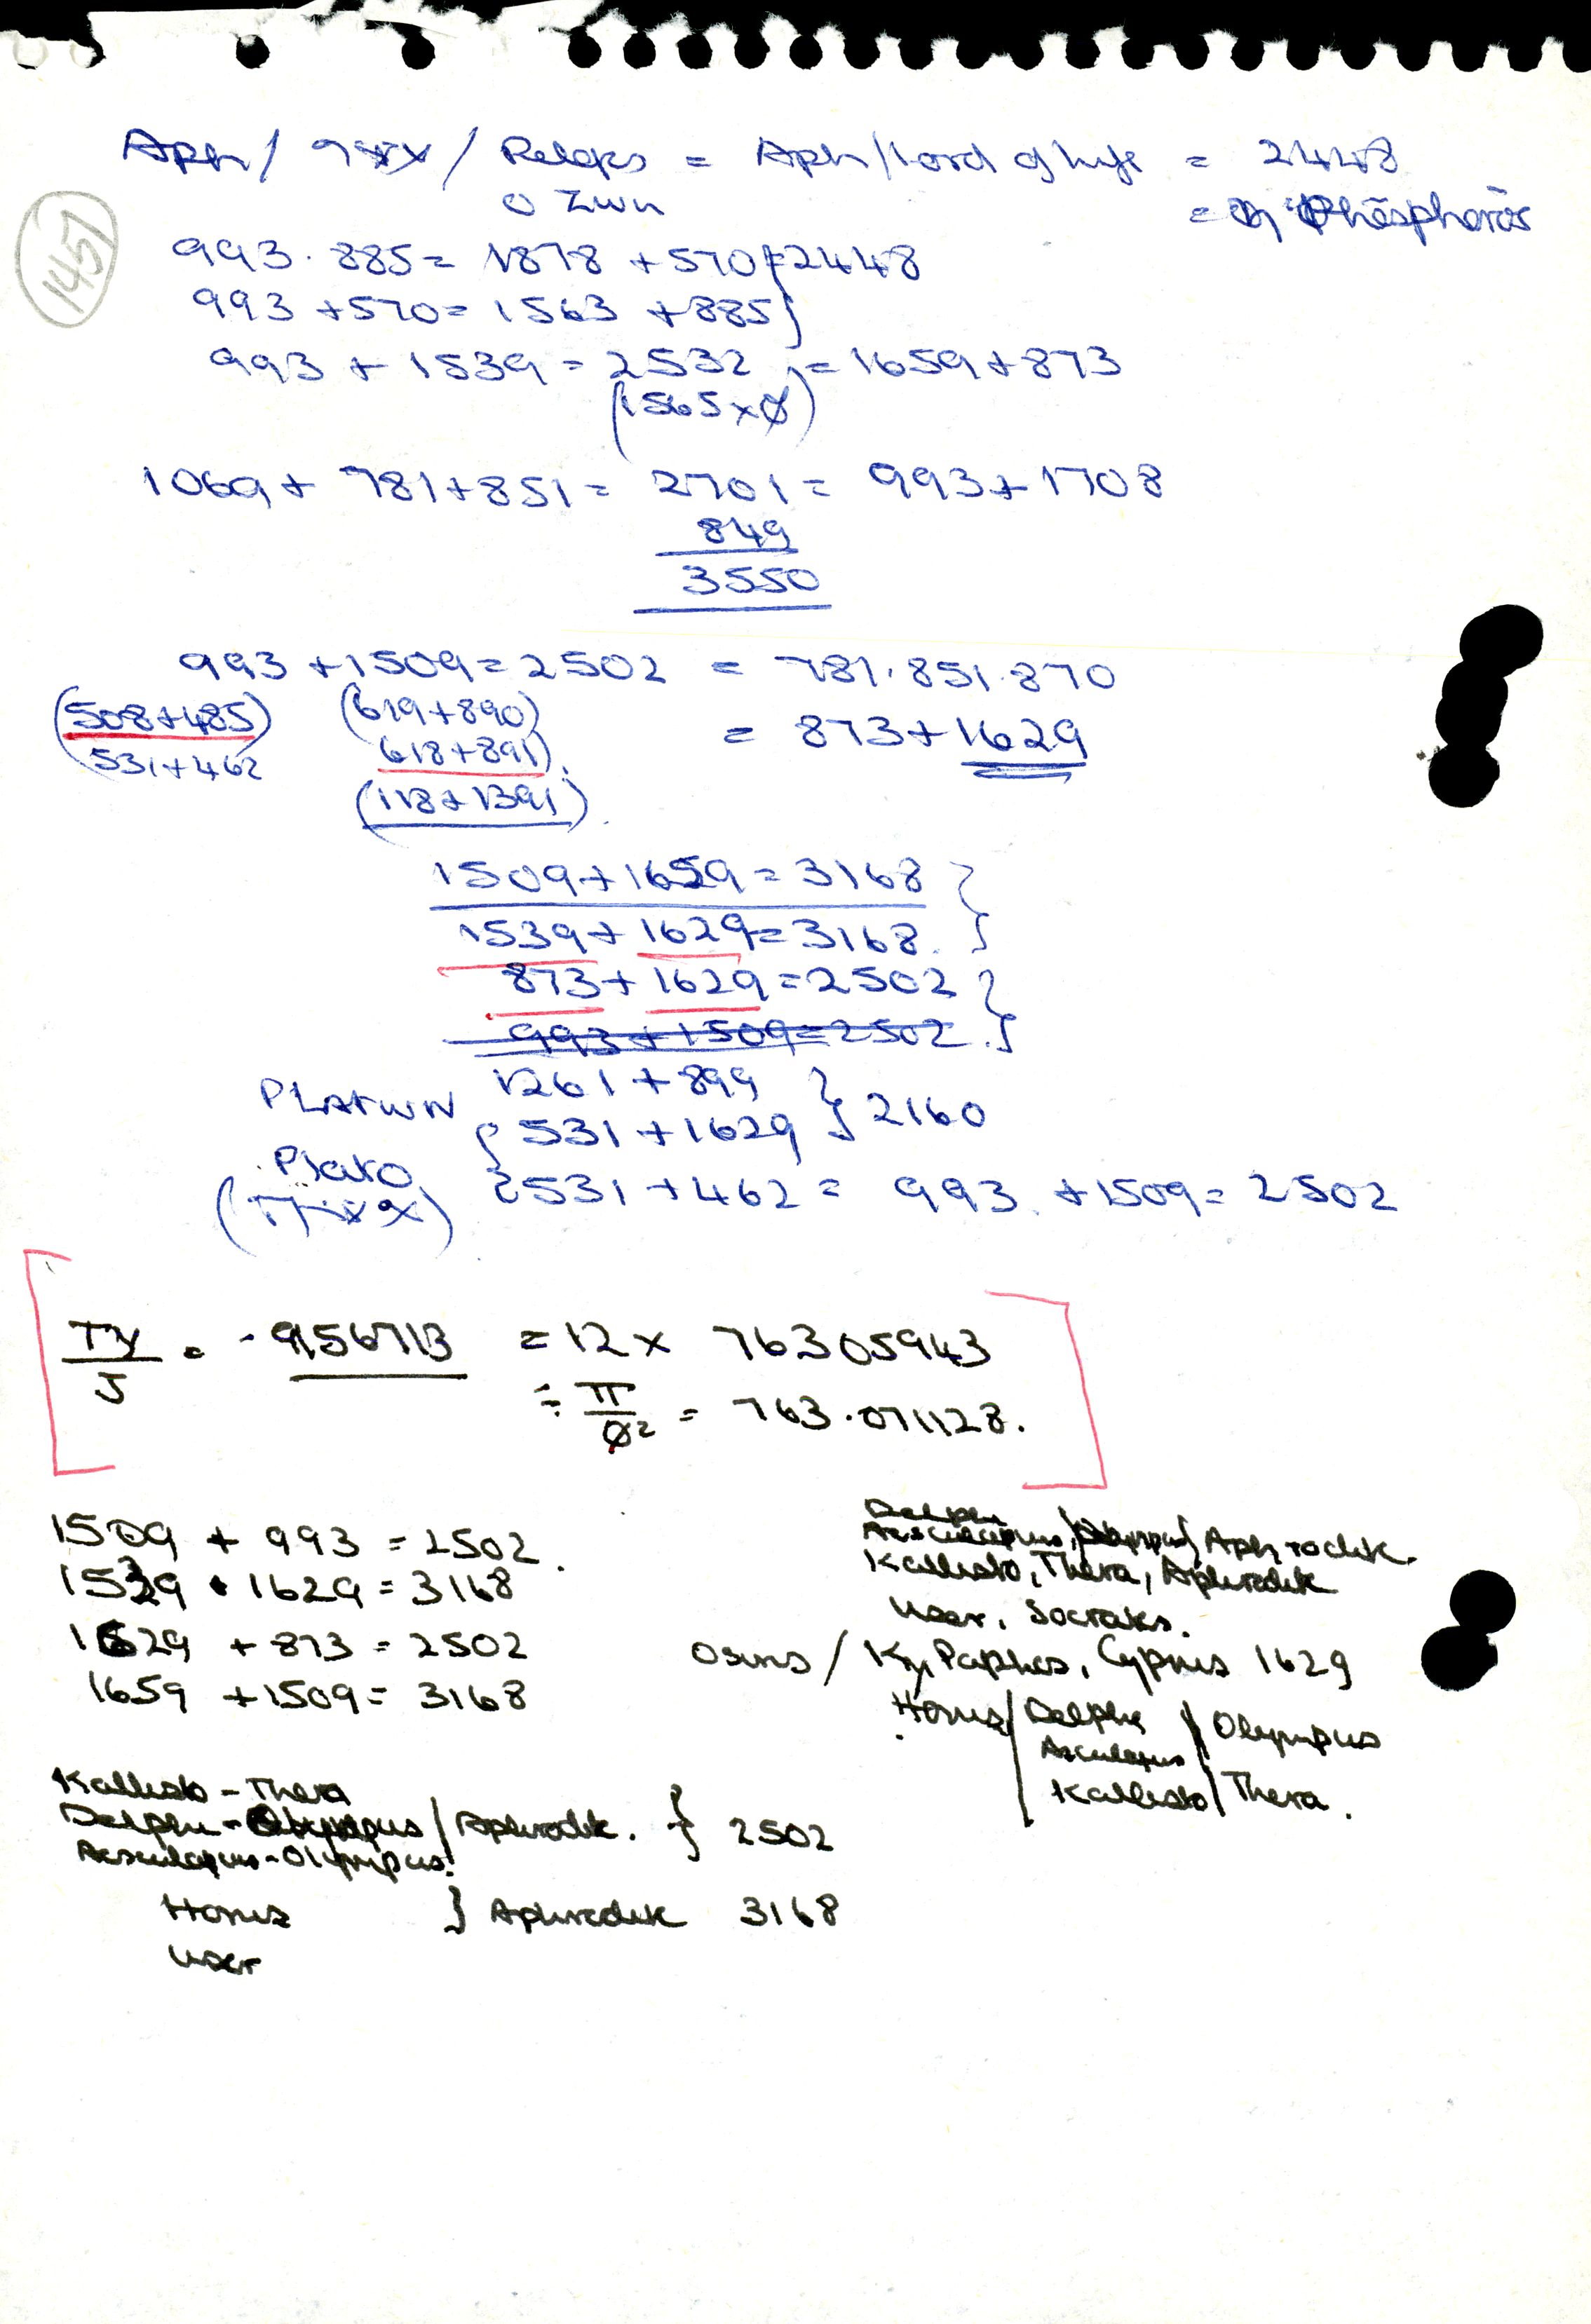 Aph / / = Aph / Lord of Life = 2448
O Zwn = Phōsphorōs
1457
993 . 885 = 1878 + 570 } 2448
993 + 570 = 1563 + 885 }
993 + 1539 = 2532 = 1659 + 873
(1565 x Ø)
1069 + 781 + 851 = 2701 = 993 + 1708
849
3550
993 + 1509 = 2502 = 781 . 851 . 870
(508 + 485) (619 + 890) = 873 + 1629
531 + 462 618 + 891)
(118 + 1391)
1509 + 1659 = 3168 }
1539 + 1629 = 3168 }
873 + 1629 = 2502 }
993 + 1509 = 2502 }
PLATWN 1261 + 899 } 2160
531 + 1629
Plato
531 + 462 = 993 + 1509 = 2502
TY / J = .9156713 = 12 x 76305943
÷ π / Ø² = 763.071128.
1509 + 993 = 2502.
1539 . 1629 = 3168
1629 + 873 = 2502
1659 + 1509 = 3168
Delphi
Aesculapius, Olympus } Aphrodite.
Kallisto, Thera, Aphrodite
User, Socrates.
Osiris / Ky, Paphos, Cyprus 1629
Horus / Delphi / Olympus
Asculapius
Kallisto / Thera.
Kallisto - Thera
Delphi - Olympus / Aphrodite. } 2502
Aesculapius - Olympus.
Horus } Aphrodite 3168
User